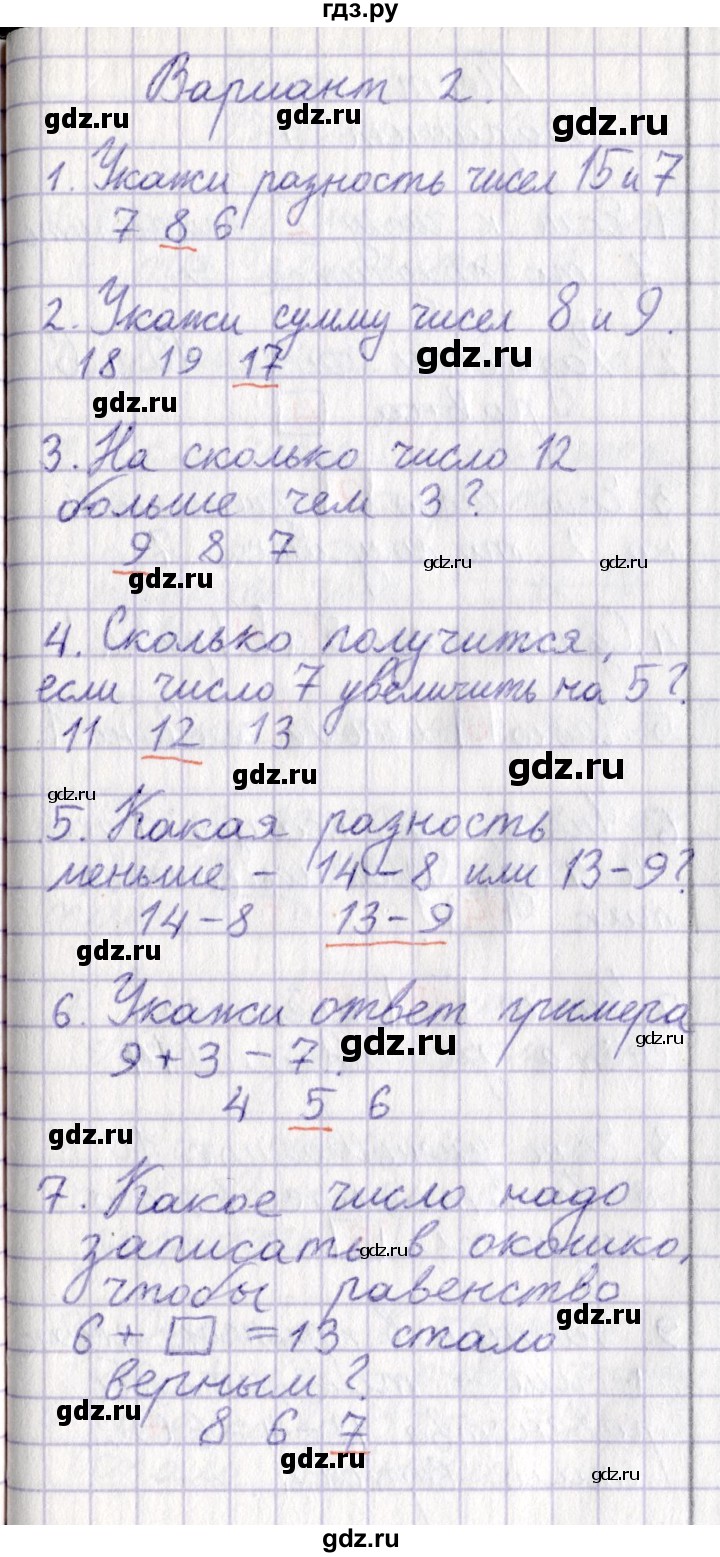 гдз.ру
Вариант 2.
gdz.ru gdz.ru gdz.ru
1. Укажи разность чисел 15 и 7
7 8 6
2. Укажи сумму чисел 8 и 9.
18 19 17
gdz.ru
gdz.ru
3. На сколько число 12
больше чем 3?
9 8 7
gdz.ru gdz.ru gdz.ru
4. Сколько получится,
если число 7 увеличить на 5?
11 12 13
gdz.ru gdz.ru
gdz.ru
5. Какая разность
меньше - 14-8 или 13-9?
14-8 13-9
gdz.ru
6. Укажи ответ примера
9+3-7.
gdz.ru gdz.ru
4 5 6
gdz.ru
7. Какое число надо
записать в окошко,
gdz.ru
чтобы равенство
gdz.ru
6 + □ = 13 стало
верным?
gdz.ru
8 6 7
gdz.ru gdz.ru
gdz.ru